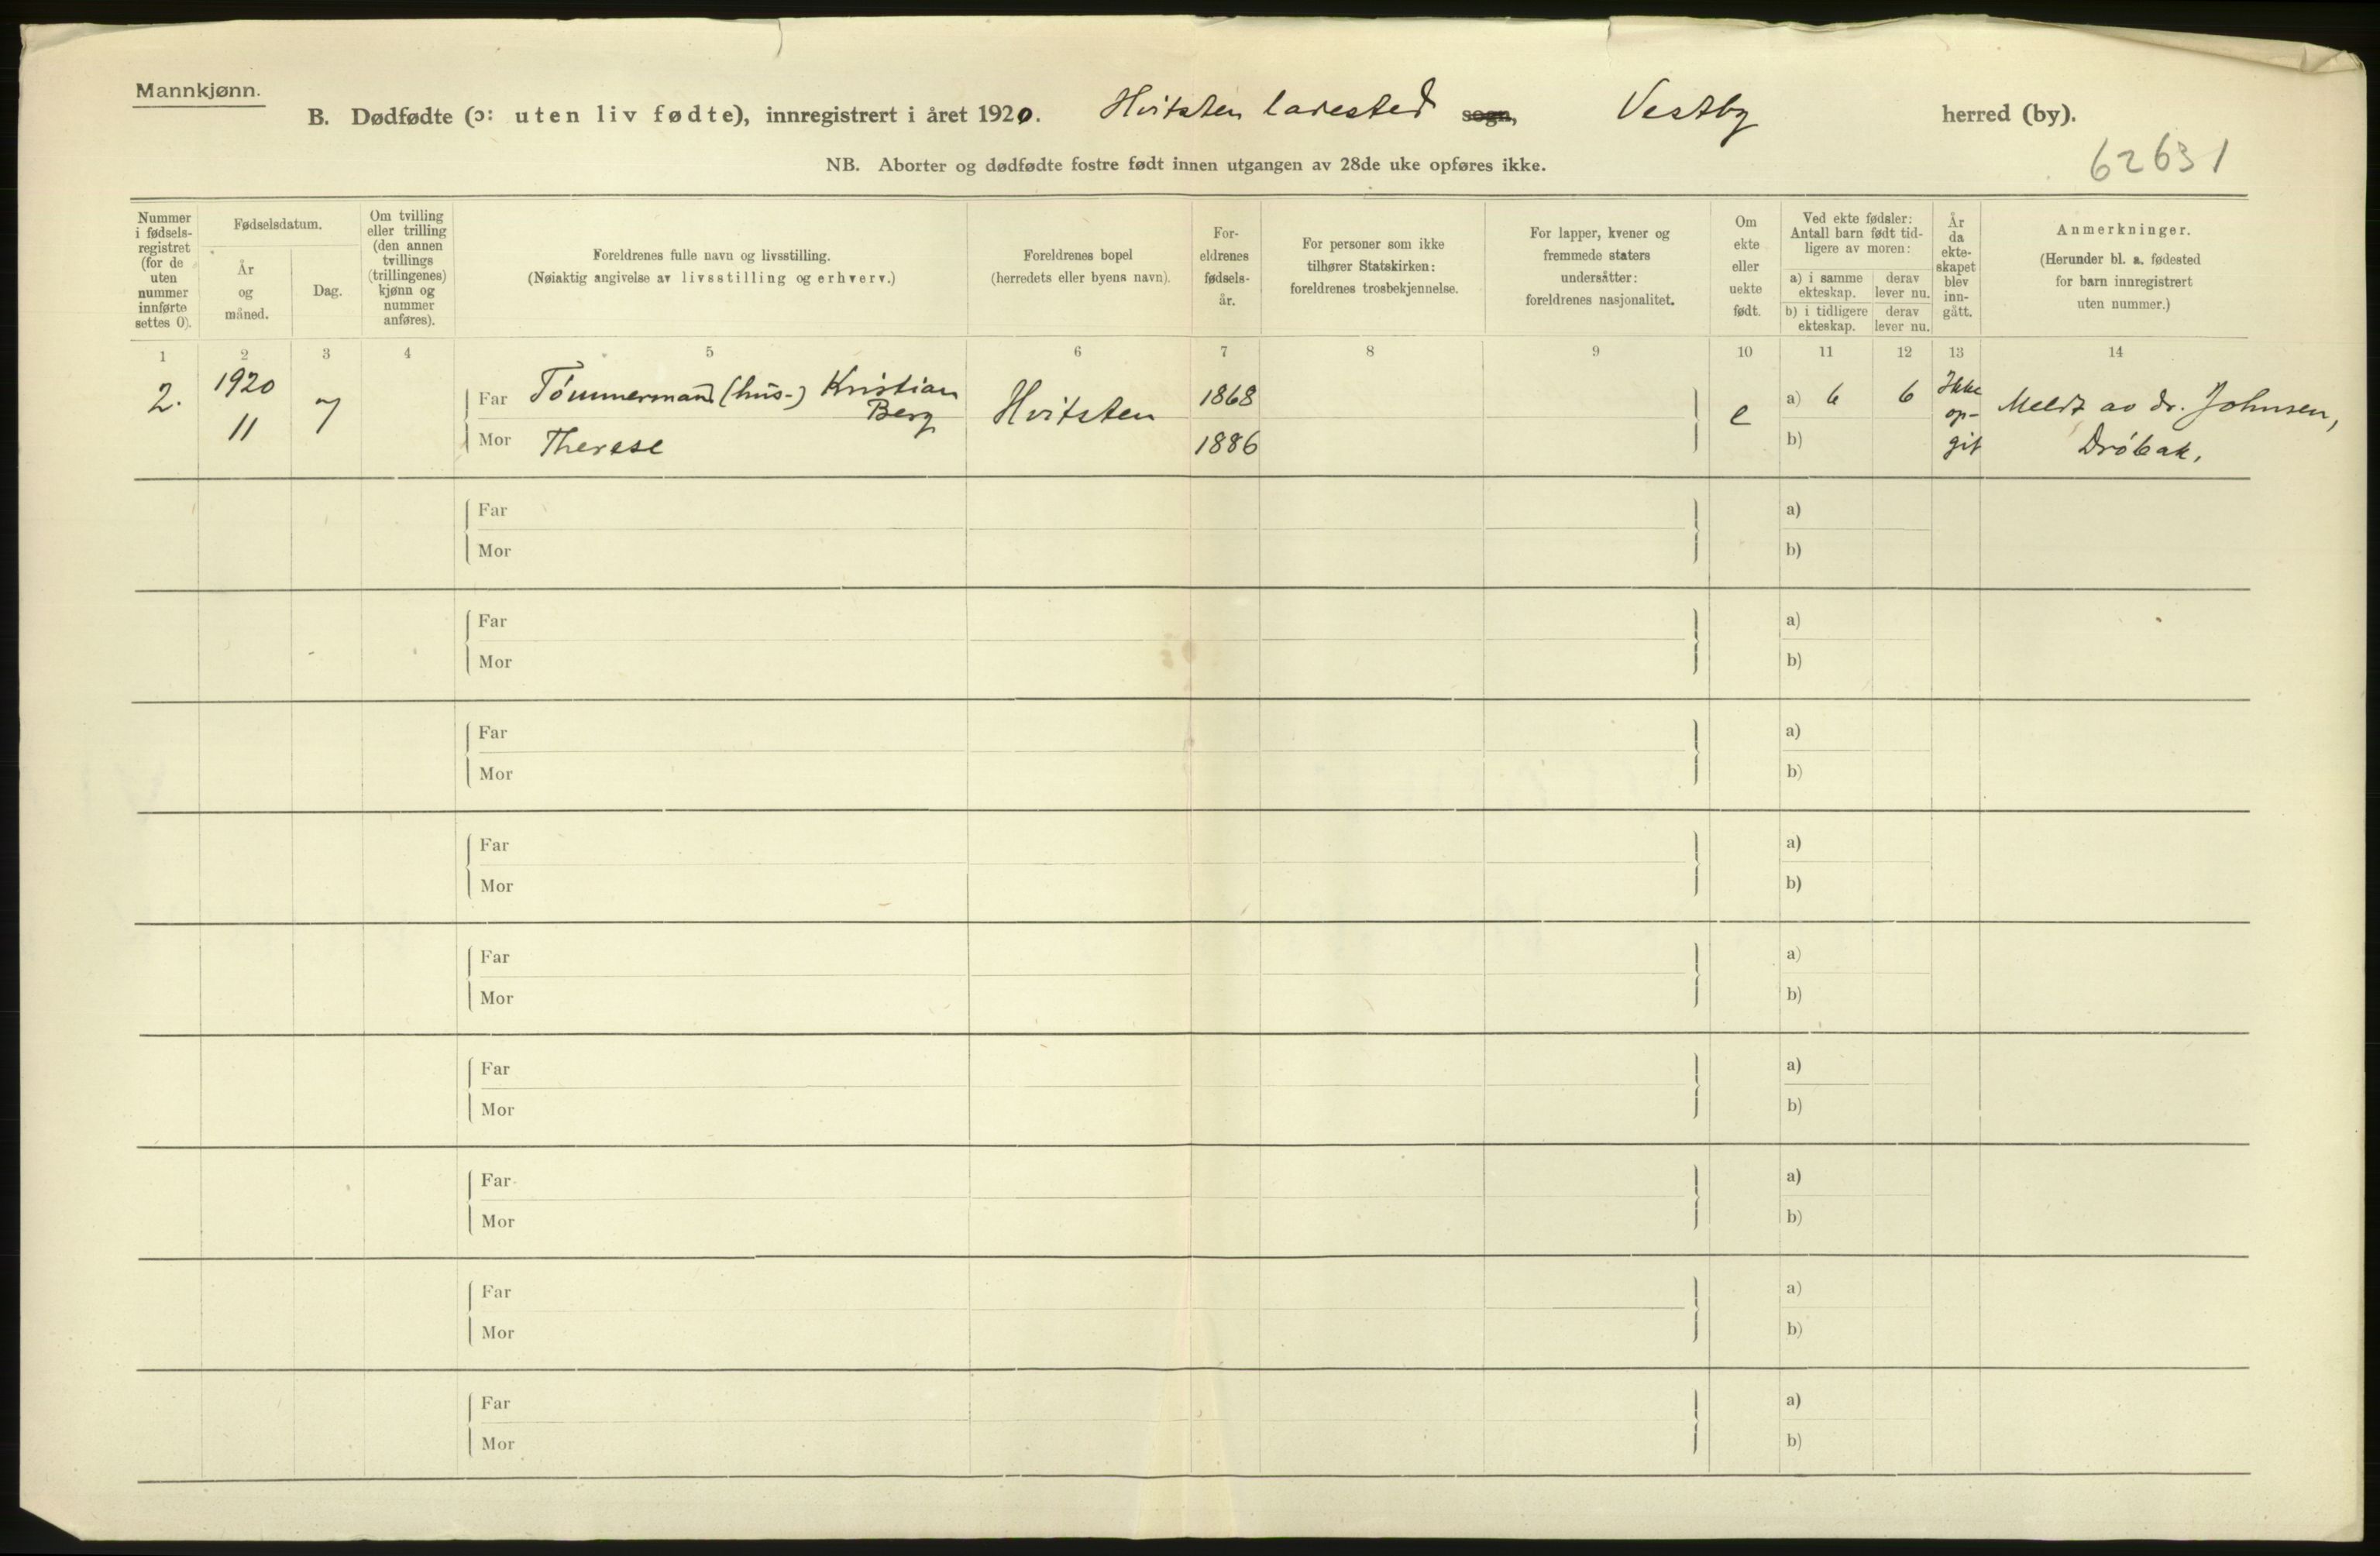 Mannkjønn.
B. Dødfødte (ɔ: uten liv fødte), innregistrert i året 1920. Hvitsten ladested sogn, Vestby herred (by).
NB. Aborter og dødfødte fostre født innen utgangen av 28de uke opføres ikke.
62631
Nummer
i fødsels-
registret
(for de
uten
nummer
innførte
settes 0).
Fødselsdatum.
År
og
måned.
Dag.
Om tvilling
eller trilling
(den annen
tvillings
(trillingenes)
kjønn og
nummer
anføres).
Foreldrenes fulle navn og livsstilling.
(Nøiaktig angivelse av livsstilling og erhverv.)
Foreldrenes bopel
(herredets eller byens navn).
For-
eldrenes
fødsels-
år.
For personer som ikke
tilhører Statskirken:
foreldrenes trosbekjennelse.
For lapper, kvener og
fremmede staters
undersåtter:
foreldrenes nasjonalitet.
Om
ekte
eller
uekte
født.
Ved ekte fødsler:
Antall barn født tid-
ligere av moren:
a) i samme
ekteskap.
derav
lever nu.
b) i tidligere
ekteskap.
derav
lever nu.
År
da
ekte-
skapet
blev
inn-
gått.
Anmerkninger.
(Herunder bl. a. fødested
for barn innregistrert
uten nummer.)
1 2 3 4 5 6 7 8 9 10 11 12 13 14
2. 1920 11 7
Far Tömmermand (hus-) Kristian
Berg
Mor Therese
Hvitsten
1868
1886
e
a) 6 6
b)
Ikke
op-
git
Meldt av dr. Johnsen,
Dröbak.
Far a)
Mor b)
Far a)
Mor b)
Far a)
Mor b)
Far a)
Mor b)
Far a)
Mor b)
Far a)
Mor b)
Far a)
Mor b)
Far a)
Mor b)
Far a)
Mor b)